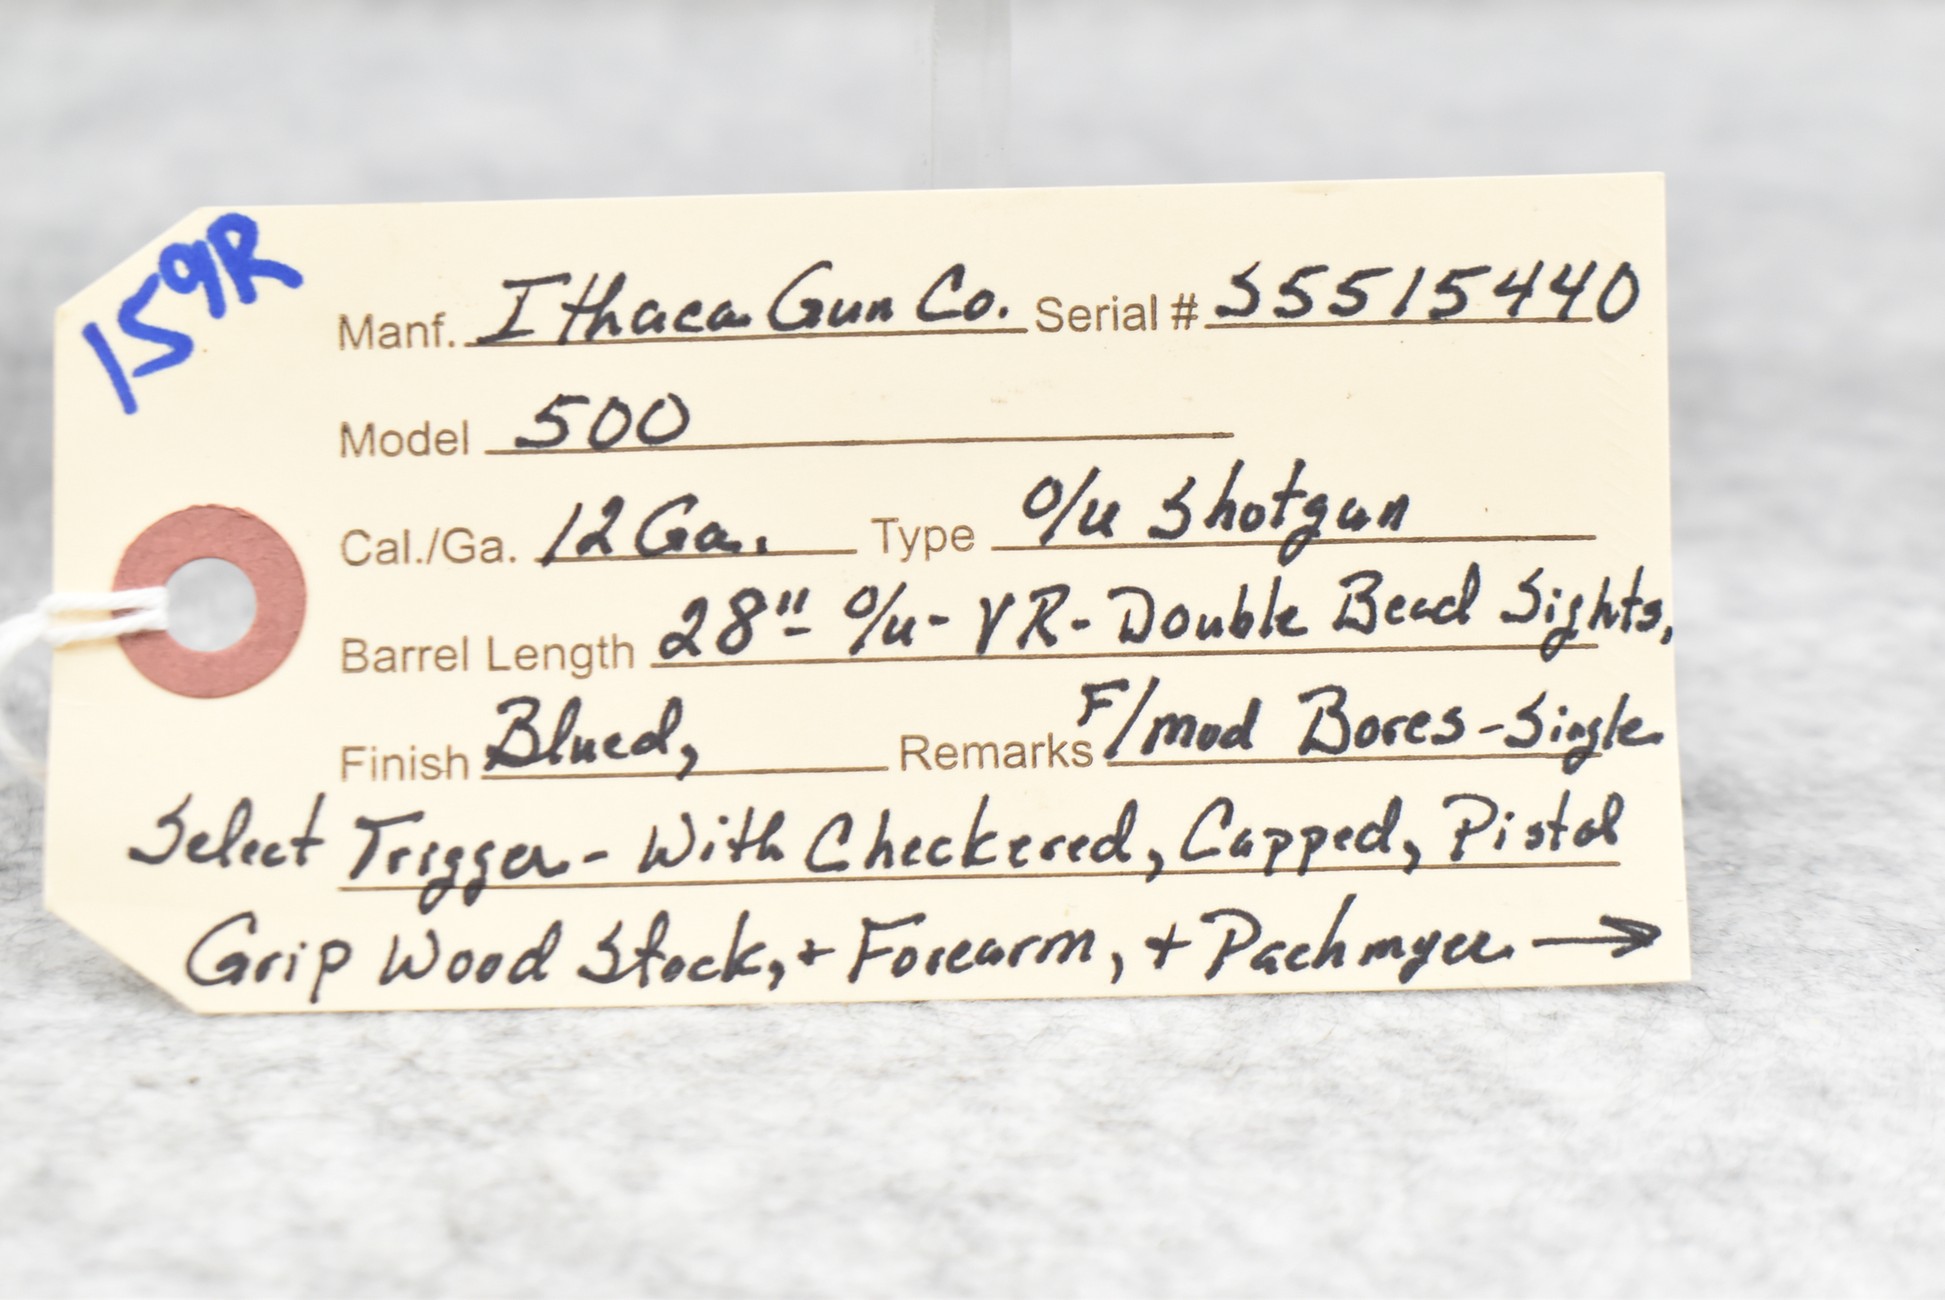 159R
Manf. Ithaca Gun Co. Serial # S5515440
Model 500
Cal./Ga. 12 Ga. Type O/u Shotgun
Barrel Length 28" O/u - VR - Double Bead Sights,
Finish Blued, Remarks F/mod Bores - Single
Select Trigger - With Checkered, Capped, Pistol
Grip Wood Stock, + Forearm, + Pachmyer →